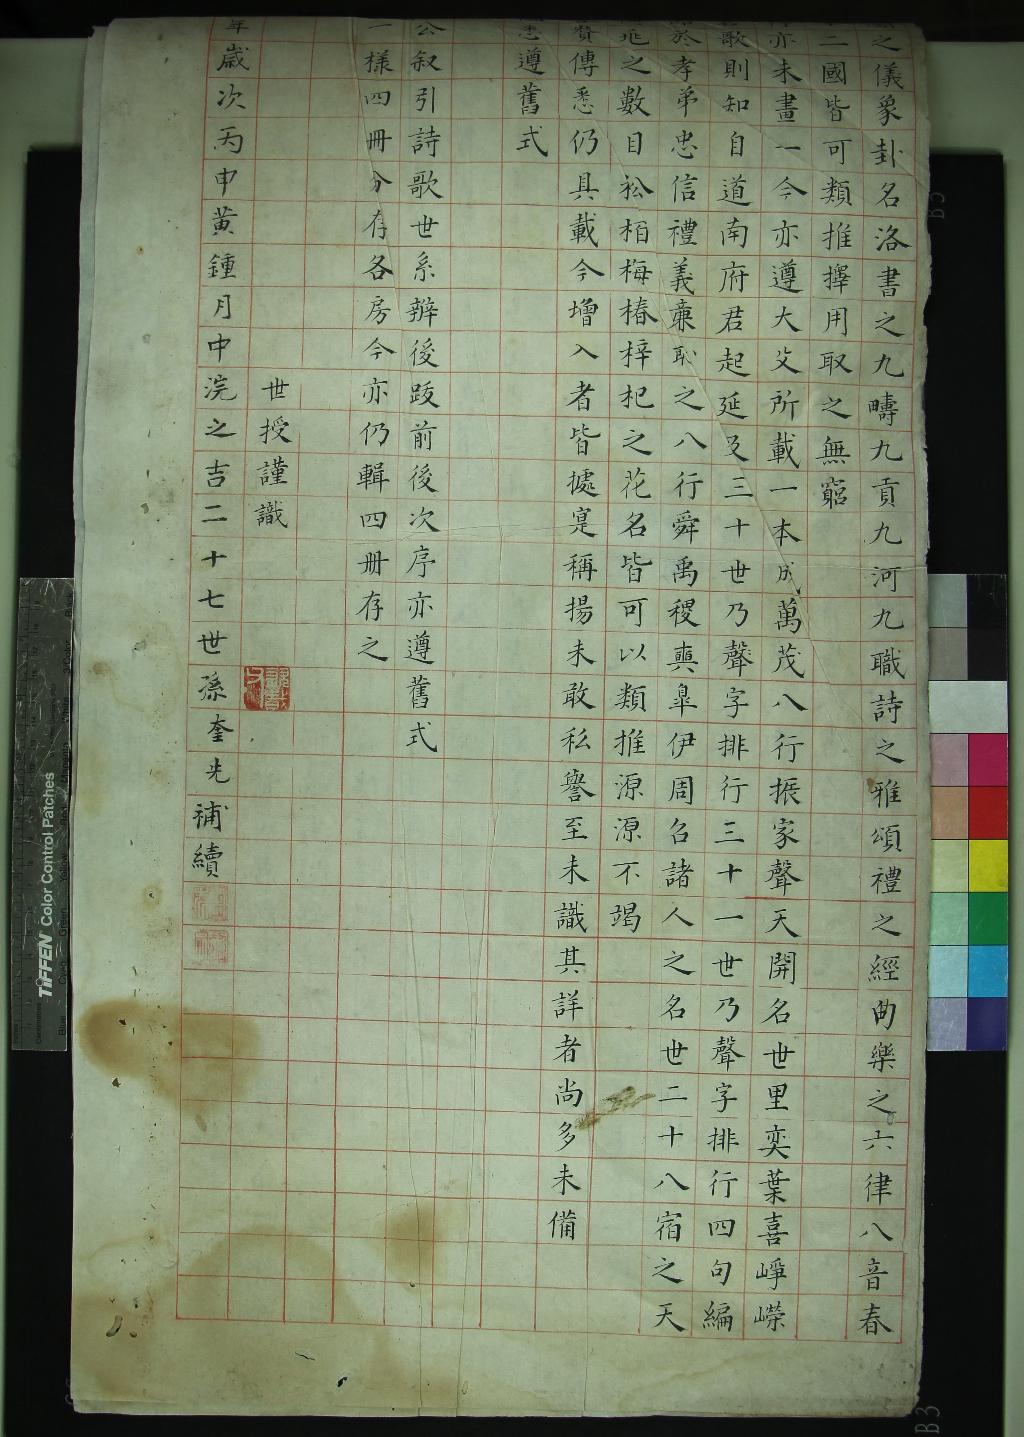 之儀象卦名洛書之九疇九貢九河九職詩之雅頌禮之經曲樂之六律八音春
二國皆可類推擇用取之無窮
亦未畫一今亦遵大父所載一本成萬茂八行振家聲天開名世里奕葉喜崢嶸
歌則知自道南府君起延及三十世乃聲字排行三十一世乃聲字排行四句編
於孝弟忠信禮義廉恥之八行舜禹稷奭皐伊周召諸人之名世二十八宿之天
之數目松栢梅椿梓杞之花名皆可以類推源源不竭
賛傳悉仍具載今增入者皆據寔稱揚未敢私譽至未識其詳者尚多未備
悉遵舊式
公叙引詩歌世系辨後跋前後次序亦遵舊式
一樣四冊分存各房今亦仍輯四冊存之
世授謹識
年歲次丙申黃鍾月中浣之吉二十七世孫奎光補續
TIFFEN Color Control Patches
B3